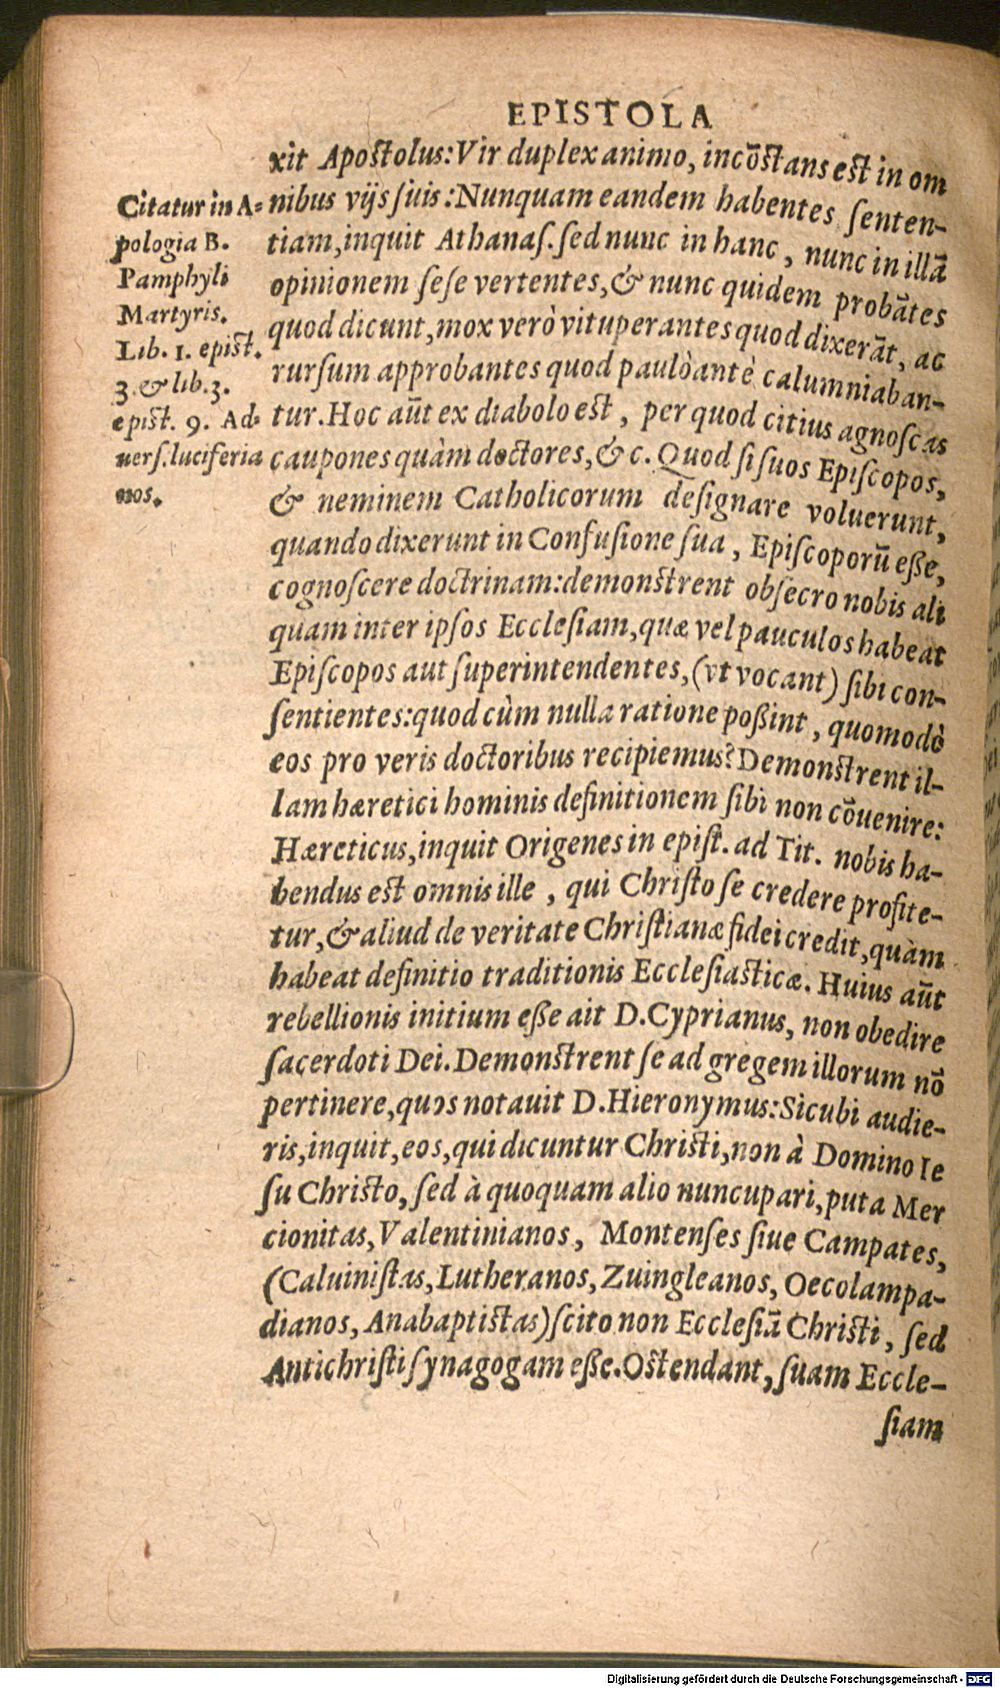 EPISTOLA
xit Apostolus: Vir duplex animo, incōstans est in om
nibus vijs suis: Nunquam eandem habentes senten-
tiam, inquit Athanas. sed nunc in hanc, nunc in illā
opinionem sese vertentes, & nunc quidem probātes
quod dicunt, mox verò vituperantes quod dixerāt, ac
rursum approbantes quod paulò antè calumniaban-
tur. Hoc aūt ex diabolo est, per quod citius agnoscas
caupones quàm doctores, & c. Quod si suos Episcopos,
& neminem Catholicorum designare voluerunt,
quando dixerunt in Confusione sua, Episcoporū eße,
cognoscere doctrinam: demonstrent obsecro nobis ali
quam inter ipsos Ecclesiam, quæ vel pauculos habeat
Episcopos aut superintendentes, (vt vocant) sibi con-
sentientes: quod cùm nulla ratione poßint, quomodò
eos pro veris doctoribus recipiemus? Demonstrent il-
lam hæretici hominis definitionem sibi non cōuenire:
Hæreticus, inquit Origenes in epist. ad Tit. nobis ha-
bendus est omnis ille, qui Christo se credere profite-
tur, & aliud de veritate Christianæ fidei credit, quàm
habeat definitio traditionis Ecclesiasticæ. Huius aūt
rebellionis initium eße ait D. Cyprianus, non obedire
sacerdoti Dei. Demonstrent se ad gregem illorum nō
pertinere, quos notauit D. Hieronymus: Sicubi audie-
ris, inquit, eos, qui dicuntur Christi, non à Domino Ie
su Christo, sed à quoquam alio nuncupari, puta Mer
cionitas, Valentinianos, Montenses siue Campates,
(Caluinistas, Lutheranos, Zuingleanos, Oecolampa-
dianos, Anabaptistas) scito non Ecclesiā Christi, sed
Antichristi synagogam eße. Ostendant, suam Eccle-
siam
Citatur in A-
pologia B.
Pamphyli
Martyris.
Lib. 1. epist.
3. & lib. 3.
epist. 9. Ad-
uers. luciferia
nos.
Digitalisierung gefördert durch die Deutsche Forschungsgemeinschaft - DFG